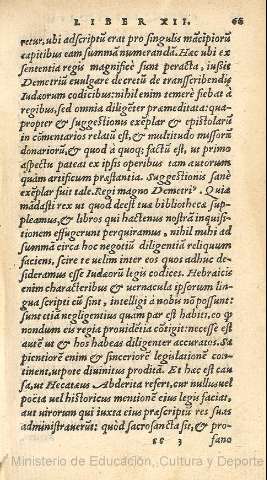 LIBER XII. 66
retur, ubi adscriptũ erat pro singulis mãcipiorũ
capitibus eam summã numerandã. Hæc ubi ex
sententia regis magnificè sunt peracta, iussit
Demetriũ evulgare decretũ de transscribendis
Iudæorum codicibus: nihil enim temerè fiebat à
regibus, sed omnia diligẽter præmeditata: qua-
propter & suggestionis exẽplar & epistolarũ
in cõmentarios relatũ est, & multitudo missorũ
donariorũ, & quod à quoq; factũ est, ut primo
aspectu pateat ex ipsis operibus tam autorum
quàm artificum præstantia. Suggestionis sanè
exẽplar fuit tale. Regi magno Demetriꝰ. Quia
mãdasti rex ut quod deest tuæ bibliothecæ sup-
pleamus, & libros qui hactenus nostrã inquisi-
tionem effugerunt perquiramus, nihil mihi ad
summã circa hoc negotiũ diligentiæ reliquum
faciens, scire te velim inter eos quos adhuc de-
sideramus esse Iudæorũ legis codices. Hebraicis
enim characteribus & vernacula ipsorum lin-
gua scripti cũ sint, intelligi à nobis nõ possunt:
sunt etiã negligentius quàm par est habiti, eo q̃
nondum eis regia providẽtia cõtigit: necesse est
autẽ ut & hos habeas diligenter accuratos. Sa
pientiorẽ enim & synceriorẽ legislationẽ con-
tinent, utpote divinitus proditã. Et hæc est cau
sa, ut Hecatæus Abderita refert, cur nullus vel
poëta vel historicus mentionẽ eius legis faciat,
aut virorum qui iuxta eius præscriptũ res suas
administraverũt: quòd sacrosancta sit, & pro-
ee 3 fano
Ministerio de Educación, Cultura y Deporte